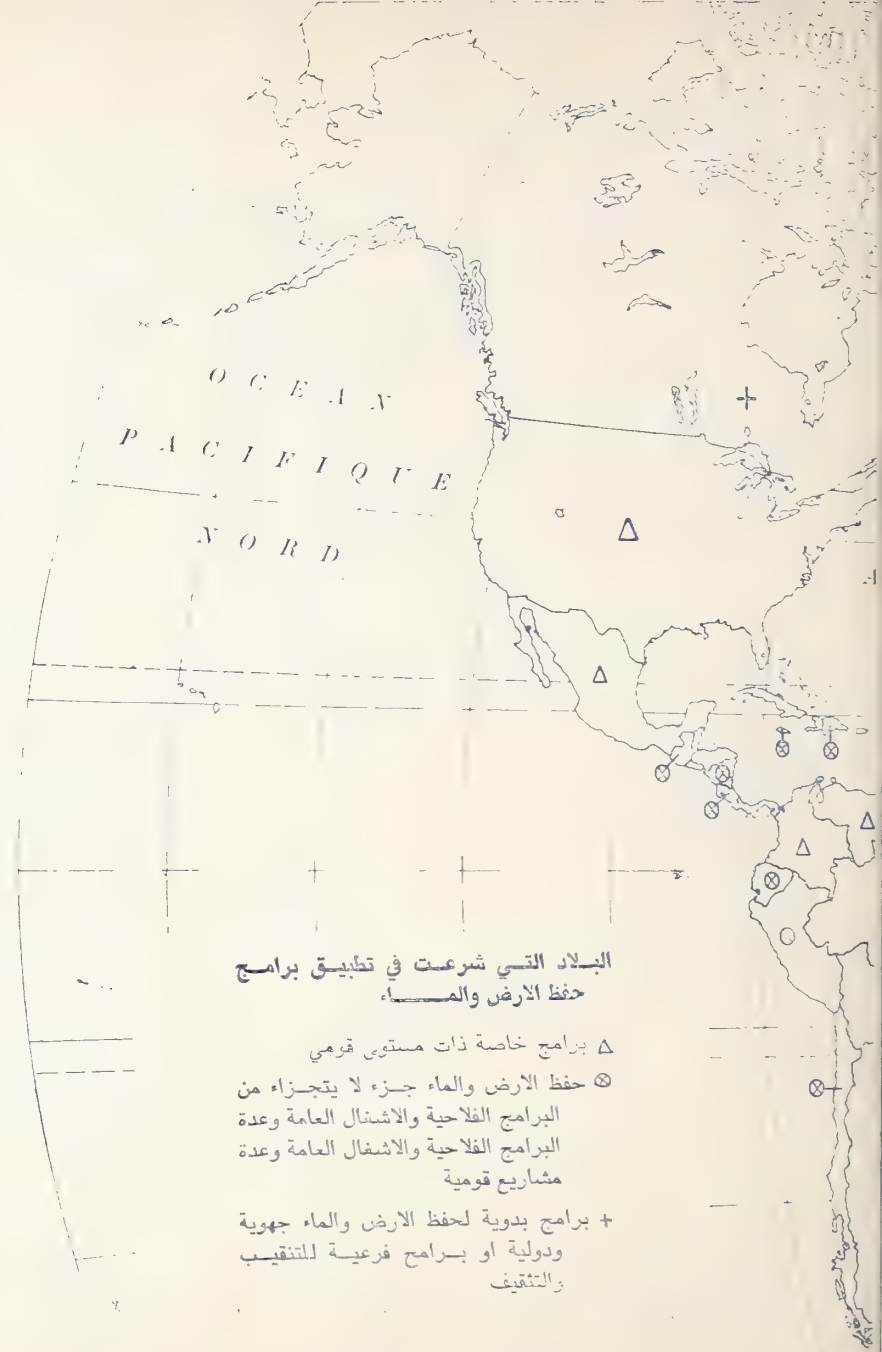 OCEAN
PACIFIQUE
NORD
البـلاد التـي شرعـت في تطبيـق برامـج
حفظ الارض والمـــــاء
Δ برامج خاصة ذات مستوى قومي
⊗ حفظ الارض والماء جـزء لا يتجـزاء من
البرامج الفلاحية والاشنال العامة وعدة
البرامج الفلاحية والاشغال العامة وعدة
مشاريع قومية
+ برامج بدوية لحفظ الارض والماء جهوية
ودولية او بـرامج فرعيـة للتنقيـب
والتثقيف